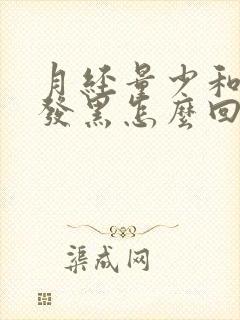 月经量少和
發黑怎麼回
渠成网